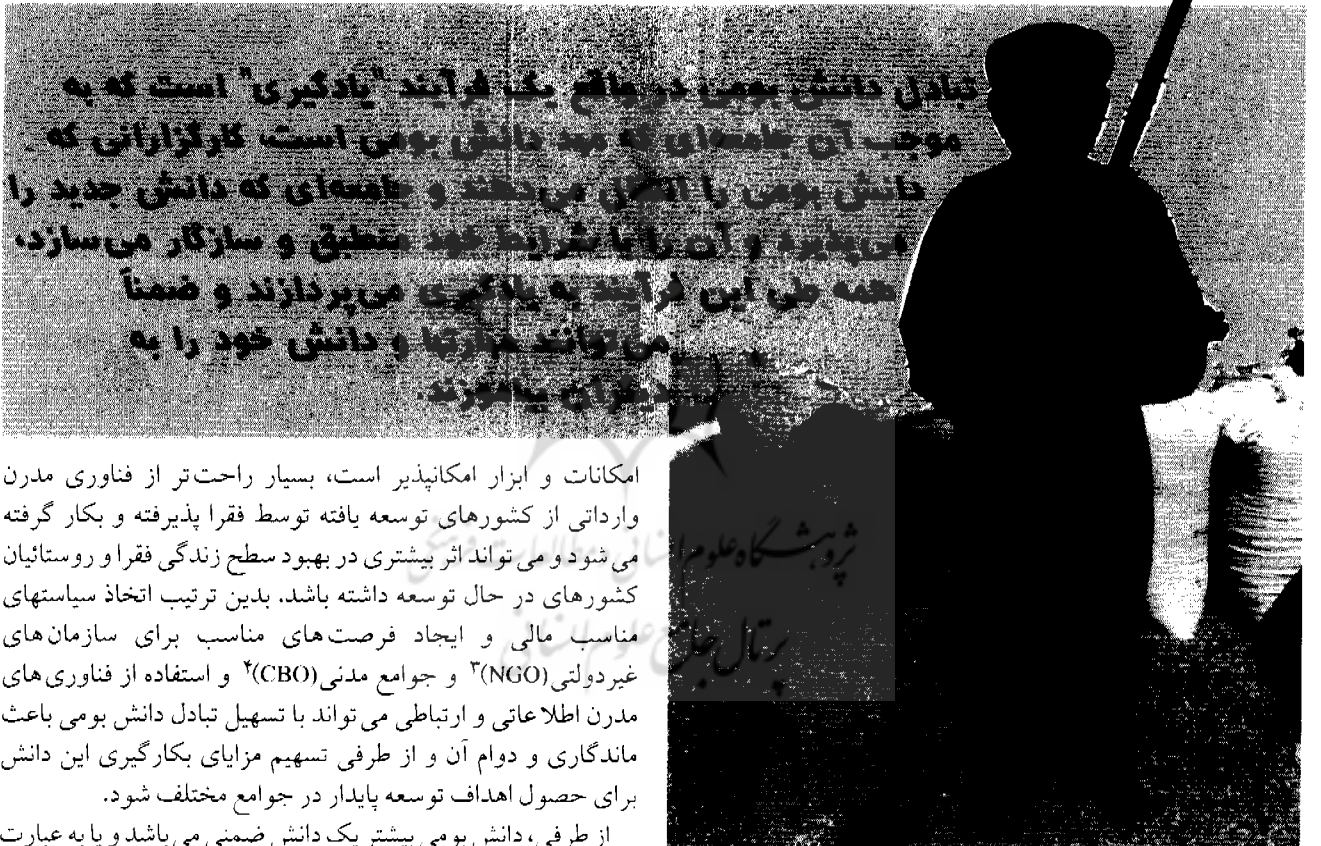 تبادل دانش بومی در واقع یک فرآیند "یادگیری" است که به
موجب آن جامعه‌ای که مهد دانش بومی است، کارگزارانی که
دانش بومی را انتقال می‌دهند و جامعه‌ای که دانش جدید را
می‌پذیرد و آن را با شرایط خود منطبق و سازگار می‌سازد،
همه طی این فرآیند به یادگیری می‌پردازند و ضمناً
می‌توانند مهارتها و دانش خود را به
دیگران بیاموزند.
امکانات و ابزار امکانپذیر است، بسیار راحت‌تر از فناوری مدرن
وارداتی از کشورهای توسعه یافته توسط فقرا پذیرفته و بکار گرفته
می شود و می تواند اثر بیشتری در بهبود سطح زندگی فقرا و روستائیان
کشورهای در حال توسعه داشته باشد. بدین ترتیب اتخاذ سیاستهای
مناسب مالی و ایجاد فرصت‌های مناسب برای سازمان‌های
غیردولتی(NGO)۳ و جوامع مدنی(CBO)۴ و استفاده از فناوری‌های
مدرن اطلاعاتی و ارتباطی می‌تواند با تسهیل تبادل دانش بومی باعث
ماندگاری و دوام آن و از طرفی تسهیم مزایای بکارگیری این دانش
برای حصول اهداف توسعه پایدار در جوامع مختلف شود.
از طرفی، دانش بومی بیشتر یک دانش ضمنی می‌باشد و یا به عبارت
پژوهشگاه علوم انسانی و مطالعات فرهنگی
پرتال جامع علوم انسانی